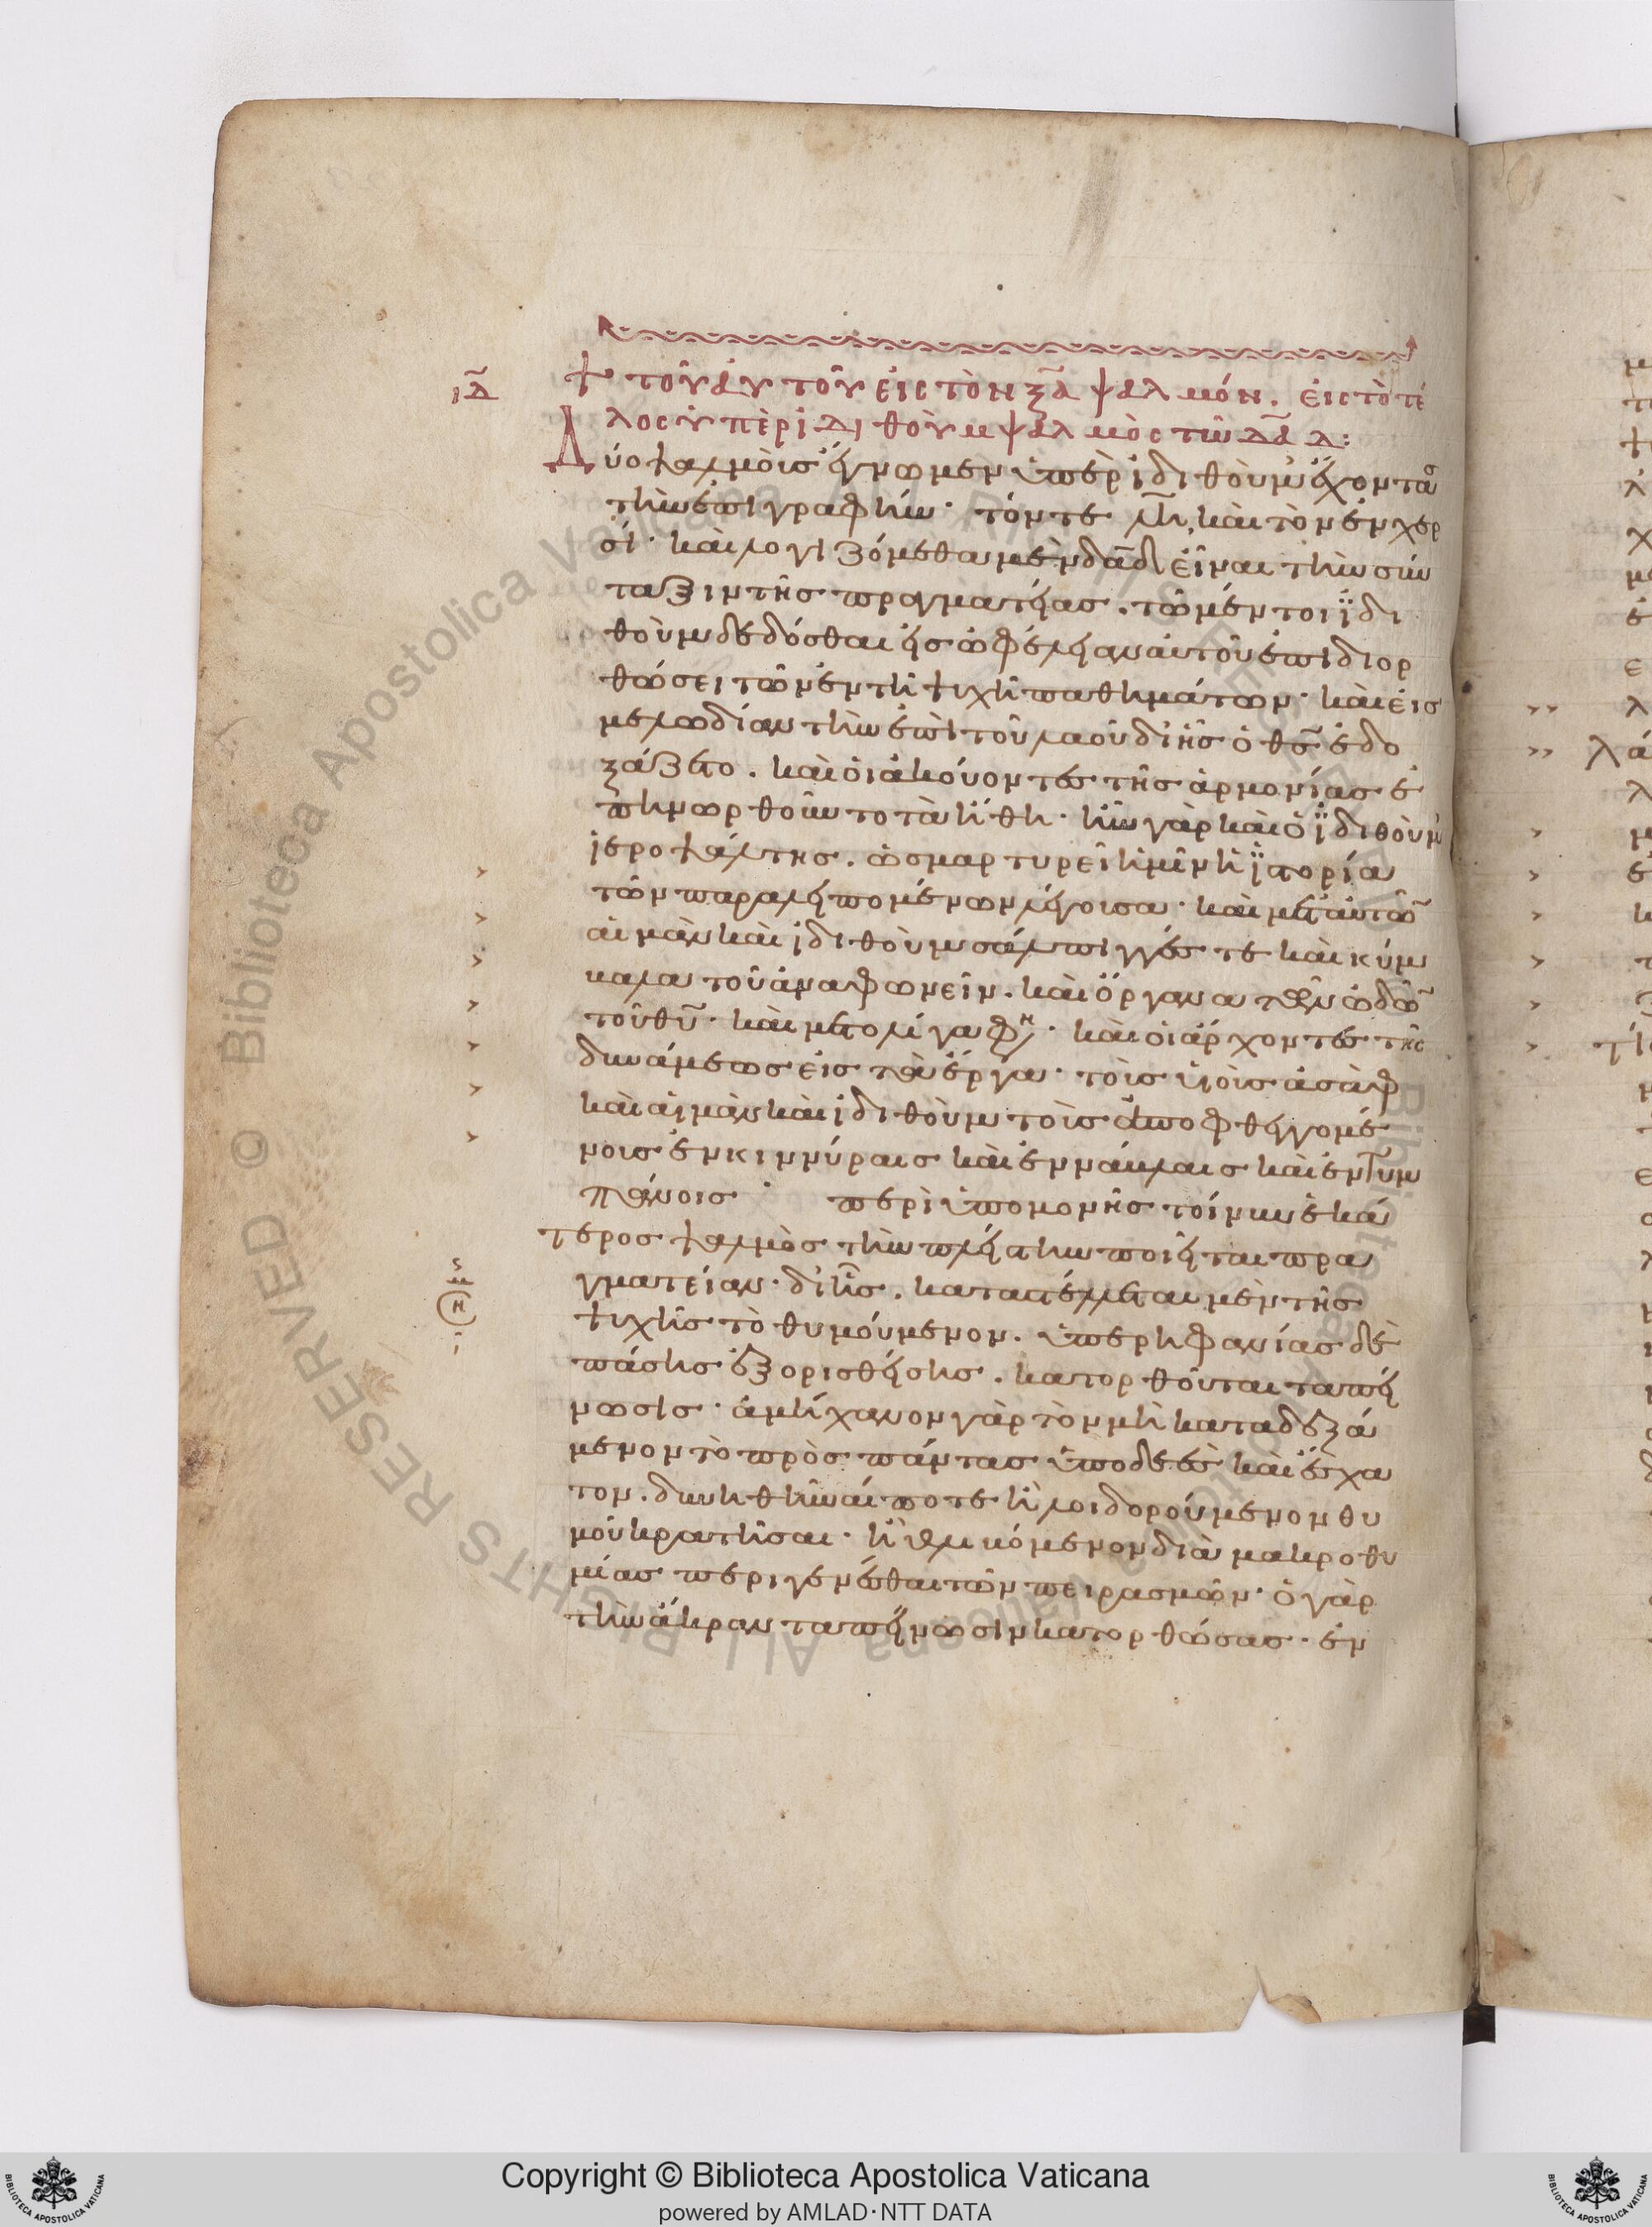 ιδ̅
☩ τοῦ αὐτοῦ εἰς τὸν ξα̅ ψαλμόν. εἰς τὸ τέ
λος ὑπὲρ ἰδιθοὺμ ψαλμὸς τῶ δα̅δ:
Δύο ψαλμοὶς ἔγνωμεν ὑπὲρ ἰδιθοὺμ ἔχοντας
τὴν ἐπιγραφήν· τόν τε λη̅, καὶ τὸν ἐν χερ
σί· καὶ λογιζόμεθα μὲν δα̅δ εἶναι τὴν σύν
ταξιν τῆς πραγματείας. τῶ μέν τοι ἰδι
θοὺμ δεδόσθαι εἰς ὠφέλειαν αὐτοῦ ἐπιδιορ
θώσει τῶν ἐν τῆ ψυχῆ παθημάτων· καὶ εἰς
μελωδίαν τὴν ἐπὶ τοῦ λαοῦ δι' ἧς ὁ θς̅ ἐδο
ξάζετο. καὶ οἱ ἀκούοντες τῆς ἁρμονίας ἐ
πηνωρθοῦντο τὰ ἤθη· ἦν γὰρ καὶ ὁ ἰδιθοὺμ
ἱεροψάλτης. ὡς μαρτυρεῖ ἡμῖν ἡ ἱστορία
τῶν παραλειπομένων λέγουσα· καὶ μετ' αὐτῶ̅
αἰμὰν καὶ ἰδιθοὺμ σάλπιγγές τε καὶ κύμ
βαλα τοῦ ἀναφωνεῖν. καὶ ὄργανα τῶν ὠδῶ̅
τοῦ θυ̅· καὶ μετ' ὀλίγα φη· καὶ οἱ ἄρχοντες τῆς
δυνάμεως εἰς τὰ ἔργα· τοῖς υἱοῖς ἀσὰφ
καὶ αἰμὰν καὶ ἰδιθοὺμ τοῖς ἀποφθεγγομέ
νοις ἐν κιννύραις καὶ ἐν νάβλαις καὶ ἐν τυμ
πάνοις· περὶ ὑπομονῆς τοίνυν ἑκά
τερος ψαλμὸς τὴν πλείστην ποιεῖται πρα
γματείαν· δι' ἧς. καταστέλλεται μὲν τῆς
ψυχῆς τὸ θυμούμενον. ὑπερηφανίας δὲ
πάσης ἐξορισθείσης. κατορθοῦται ταπεί
νωσις· ἀμήχανον γὰρ τὸν μὴ καταδεξά
μενον τὸ πρὸς πάντας ὑποδεὲς καὶ ἔσχα
τον. δυνηθῆναί ποτε ἢ λοιδορούμενον θυ
μοῦ κρατῆσαι· ἢ θλιβόμενον διὰ μακροθυ
μίας περιγενέσθαι τῶν πειρασμῶν· ὁ γὰρ
τὴν ἄκραν ταπείνωσιν κατορθώσας· ἐν
Copyright © Biblioteca Apostolica Vaticana
powered by AMLAD·NTT DATA